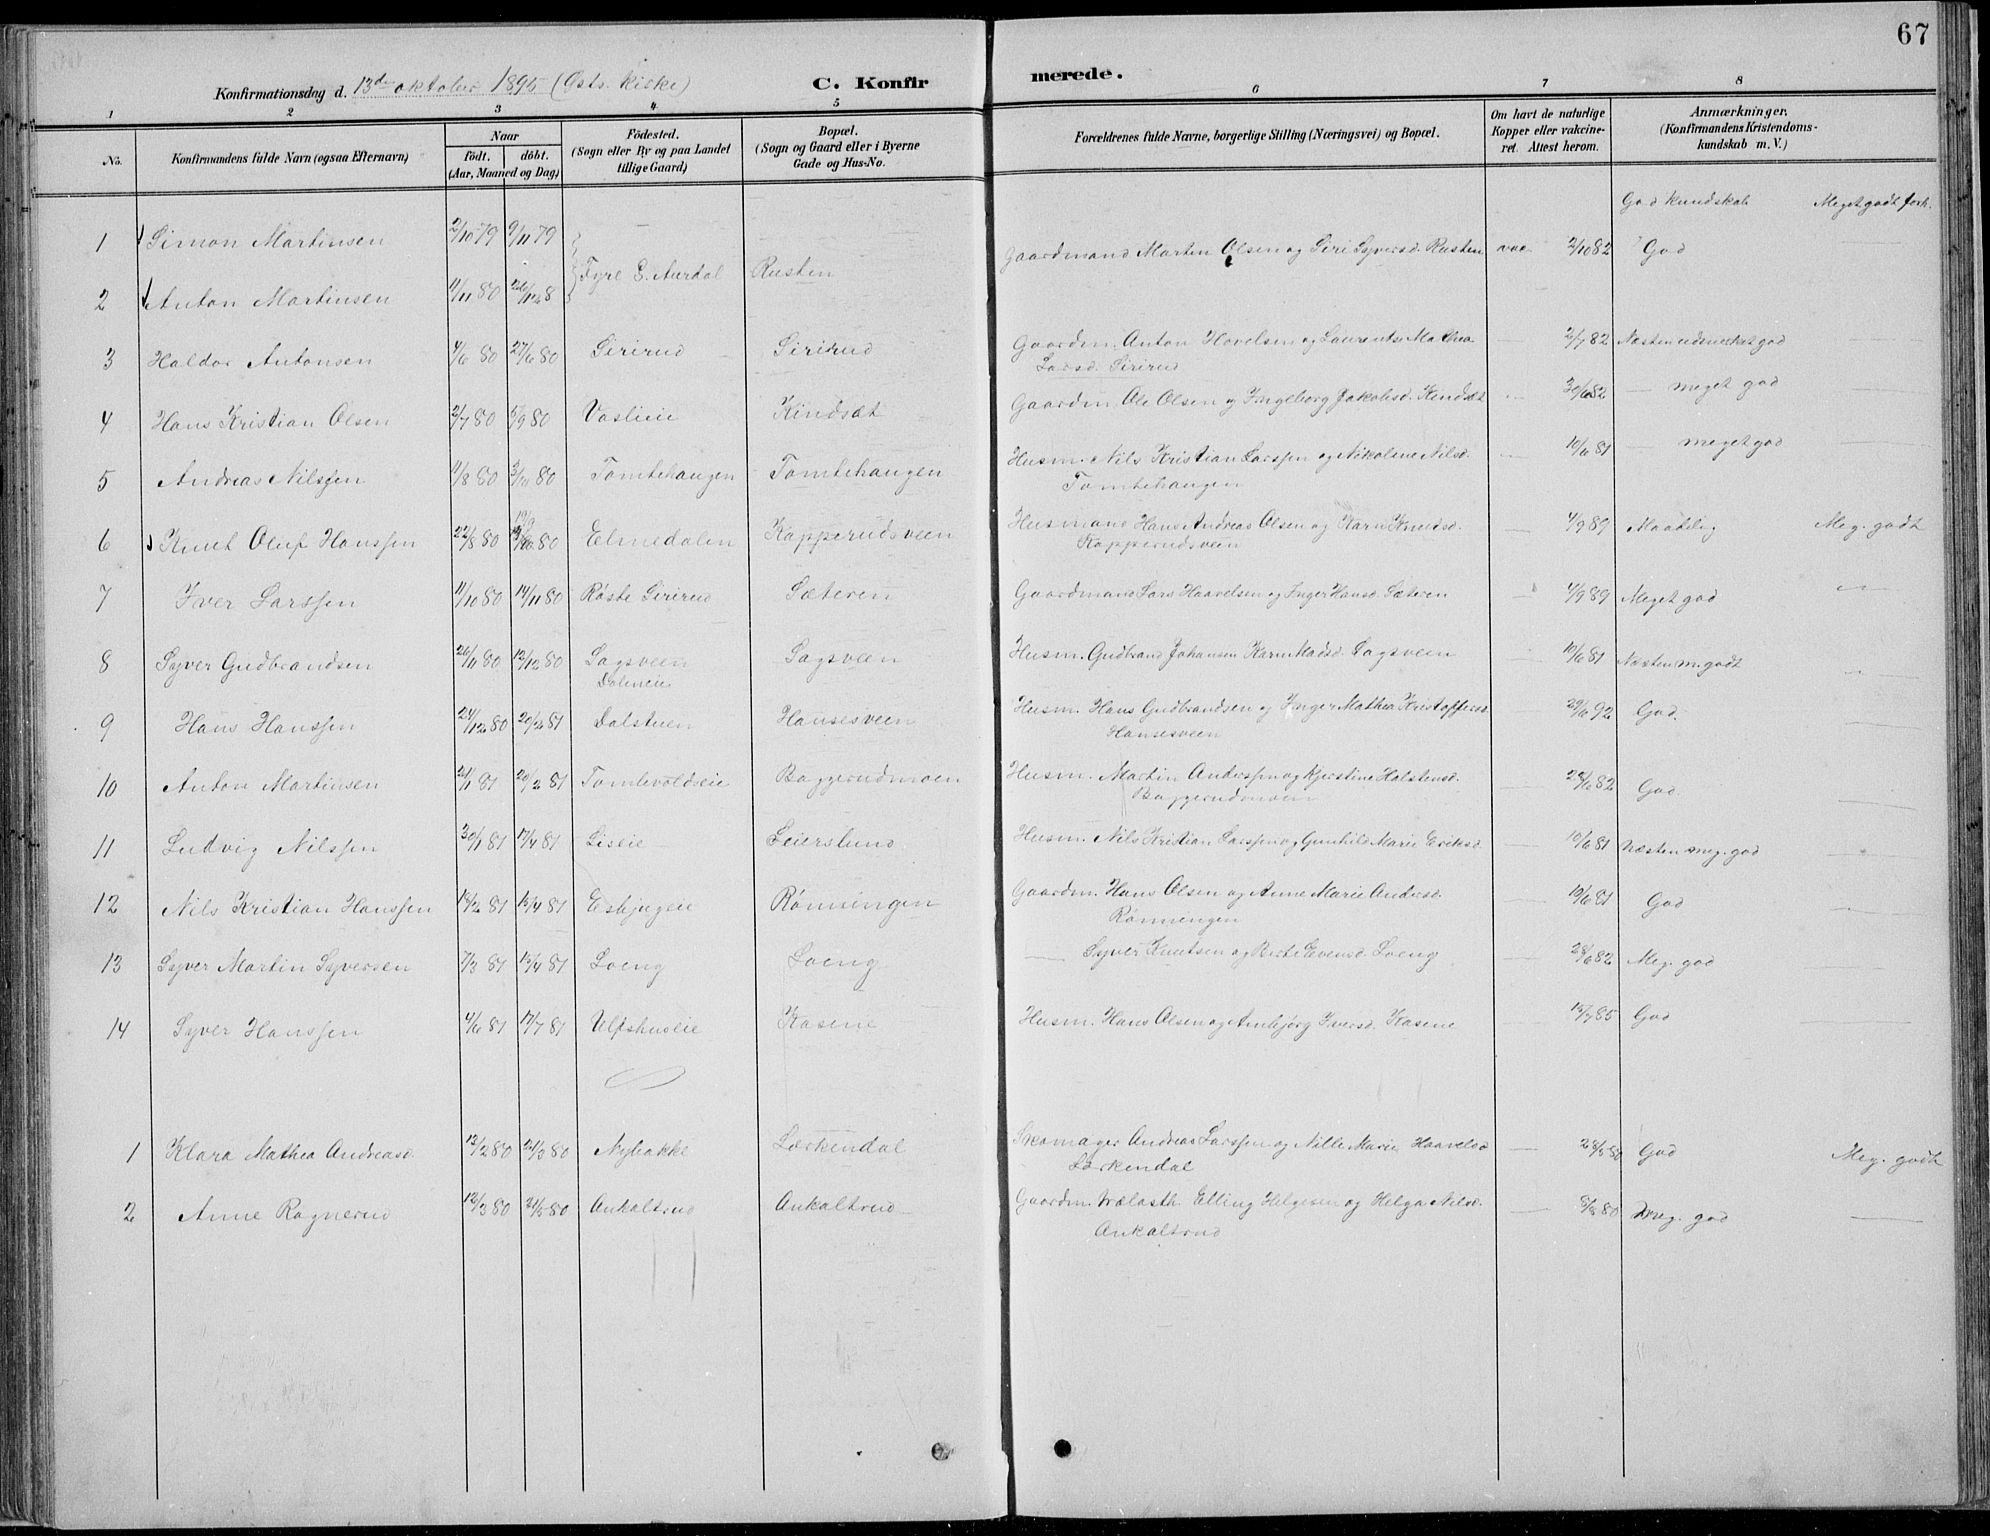 67
Konfirmationsdag d. 13de oktober 1895 (Østs. kirke) C. Konfirmerede.
1 2 3 4 5 6 7 8
No. Konfirmandens fulde Navn (ogsaa Efternavn) Naar födt. döbt. (Aar, Maaned og Dag) Födested. (Sogn eller By og paa Landet tillige Gaard) Bopæl. (Sogn og Gaard eller i Byerne Gade og Hus-No. Forældrenes fulde Navne, borgerlige Stilling (Næringsvei) og Bopæl. Om havt de naturlige Kopper eller vakcineret. Attest herom. Anmærkninger. (Konfirmandens Kristendomskundskab m. V.)
God kundskab Meget godt forh.
1 Simon Martinsen 2/10 79 9/11 79 Gaardmand Martin Olsen og Siri Syversd. Rusten vac 2/10 82 God
2 Anton Martinsen 11/11 80 26/12 8 Fyrl E. Aurdal Rusten
3 Haldor Antonsen 4/6 80 27/6 80 Sirirud Sirirud Gaardm. Anton Hovelsen og Laurentse Mathea — 2/7 82 Næsten udmerket god
Larsd. Sirirud
4 Hans Kristian Olsen 2/7 80 5/9 80 Vaslieie Kindsæt Gaardm. Ole Olsen og Ingeborg Jakobsd. Kindsæt 30/6 82 — meget god
5 Andreas Nilssen 11/8 80 3/10 80 Tomtehaugen Tomtehaugen Husm. Nils Kristian Larssen og Nikoline Nilsd. 10/6 81 — meget god
Tomtehaugen
6 Knut Oluf Hanssen 22/8 80 19/9 80 Elmedalen Kapperudsveen Husmand Hans Andreas Olsen og Kari Knudsd. — 4/9 89 Maadelig Meg. godt
Kapperudsveen
7 Iver Larssen 11/10 80 14/11 80 Røste Sirirud Sæteren Gaardmand Lars Haavelsen og Inger Hansd. Sæteren 4/9 89 Meget god — " —
8 Syver Gudbrandsen 26/11 80 12/12 80 Sagsveen Sagsveen Husm. Gudbrand Johansen Kari Madsd. Sagsveen 10/6 81 Næsten m. godt
Daleneie
9 Hans Hanssen 24/12 80 20/2 81 Dalstuen Hansesveen Husm. Hans Gudbrandsen og Inger Mathea Kristoffersd. — 29/6 92 God.
Hansesveen
10 Anton Martinsen 21/1 81 20/2 81 Tomlevoldseie Baggerudmoen Husm. Martin Anderssen og Kjerstine Halstensd. — 28/6 82 God.
Baggerudmoen
11 Ludvig Nilssen 30/1 81 17/4 81 Liseie Leierslund Husm. Nils Kristian Larssen og Gunhild Marie Eriksd. 10/6 81 Næsten meg. god —
12 Nils Kristian Hanssen 13/2 81 15/4 81 Esbjugeie Rønningen Gaardm. Hans Olsen og Anne Marie Andersd. — 10/6 81 God —
Rønningen
13 Syver Martin Syversen 7/3 81 15/4 81 Loeng Loeng — Syver Knutsen og Berte Evensd. Loeng — 28/6 82 Meg. god —
14 Syver Hanssen 4/6 81 17/7 81 Ulfshuseie Kasene Husm. Hans Olsen og Anbjørg Iversd. Kasene — 15/7 85 God —
1 Klara Mathea Andreasd. 13/2 80 21/3 80 Nybakke Lærkendal Skomager Andreas Larssen og Nille Marie Haavelsd — 28/5 80 God Meg. godt
Lærkendal
2 Anne Ragnerud 12/3 80 21/5 80 Ankaltrud Ankaltrud Gaardm. Elling Helgesen og Helga Nilsd. — 5/8 80 Meg. god —
Ankaltrud